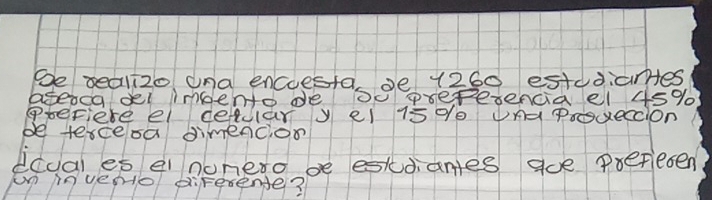 Se realizo una encuesta de 1260 estudiantes
aserca del imbento de su preferencia el 45%
prefiere el celular y el 15% una Proyeccion
de tercera dimencion
¿cual es el numero de estudiantes que prefieren
un invento diferente?